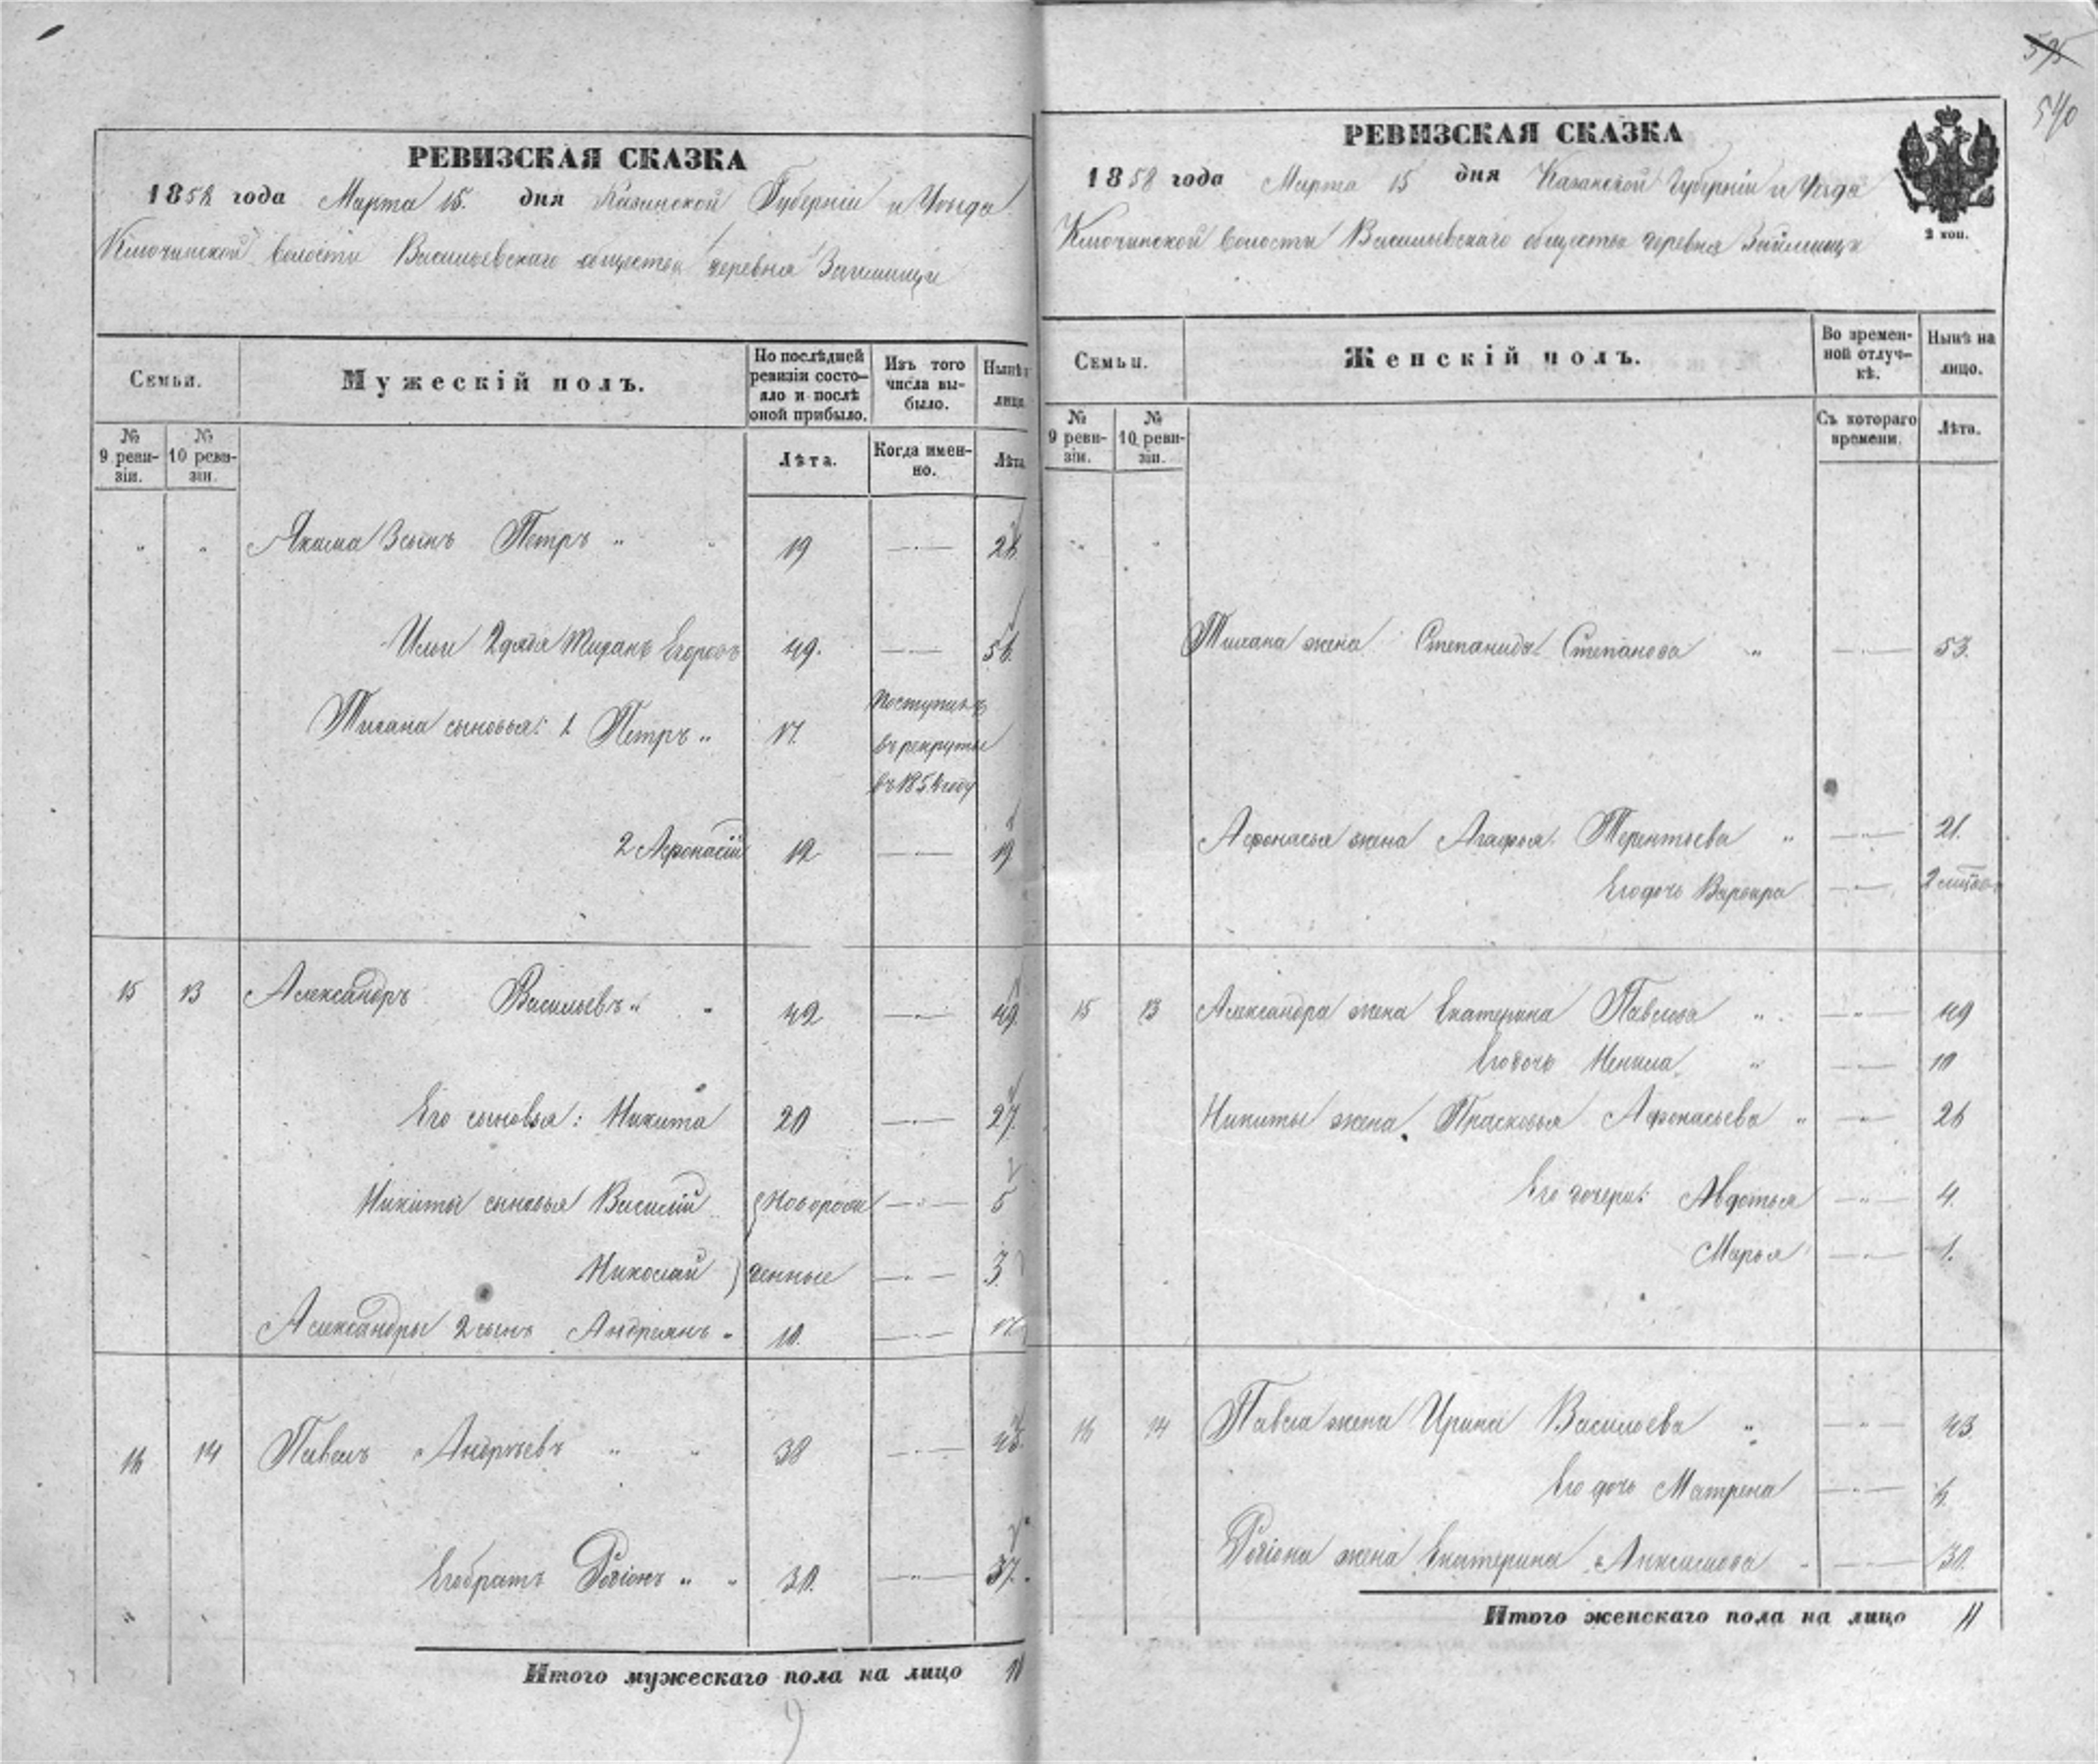 575
540
РЕВИЗСКАЯ СКАЗКА
1858 года Марта 15. дня Казанской Губерніи и Уѣзда
Ключинской волости Васильевскаго общества деревня Займищи
Семьи. Мужескій полъ. По послѣдней ревизіи состояло и послѣ оной прибыло. Изъ того числа выбыло. Нынѣ на лицо
№ 9 ревизіи. № 10 ревизіи. Лѣта. Когда именно. Лѣта
" " Якима 3 сынъ Петръ " " 19 — 26
Ильи 2 дядя Тиханъ Егоровъ 49. — 56.
Тихана сыновья: 1 Петръ " 17. Поступилъ
въ рекруты
въ 1854 году
2 Афонасій 12 — 19
15 13 Александръ Васильевъ " " 42 — 49.
Его сыновья: Никита 20 — 27.
Никиты сыновья Василій } Новорож — 5
Николай } денные — 3.
Александры 2 сынъ Андреянъ " 10. — 17.
16 14 Павелъ Андреевъ " " 38 — 45.
Его братъ Родіонъ " " 30. — 37.
"
Итого мужескаго пола на лицо 10
РЕВИЗСКАЯ СКАЗКА
1858 года Марта 15 дня Казанской Губерніи и Уѣзда
Ключинской волости Васильевскаго общества деревня Займищи
2 коп.
Семьи. Женскій полъ. Во временной отлучкѣ. Нынѣ на лицо.
№ 9 ревизіи. № 10 ревизіи. Съ котораго времени. Лѣта.
" "
Тихана жена Степанида Степанова " — 53.
Афонасья жена Агафья Терентьева " — 21.
Его дочь Варвара — 2
15 13 Александра жена Екатерина Павлова " — 49
Его дочь Ненила " — 10
Никиты жена Прасковья Афонасьева " — 26
Его дочери: Авдотья — 4.
Марья — 1.
16 14 Павла жена Ирина Васильева " — 43.
Его дочь Матрена —
Родіона жена Екатерина — 30.
Итого женскаго пола на лицо 11